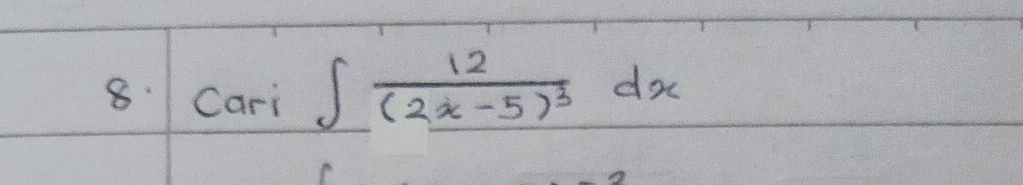 8. Cari ∫ 12/(2x-5)³ dx